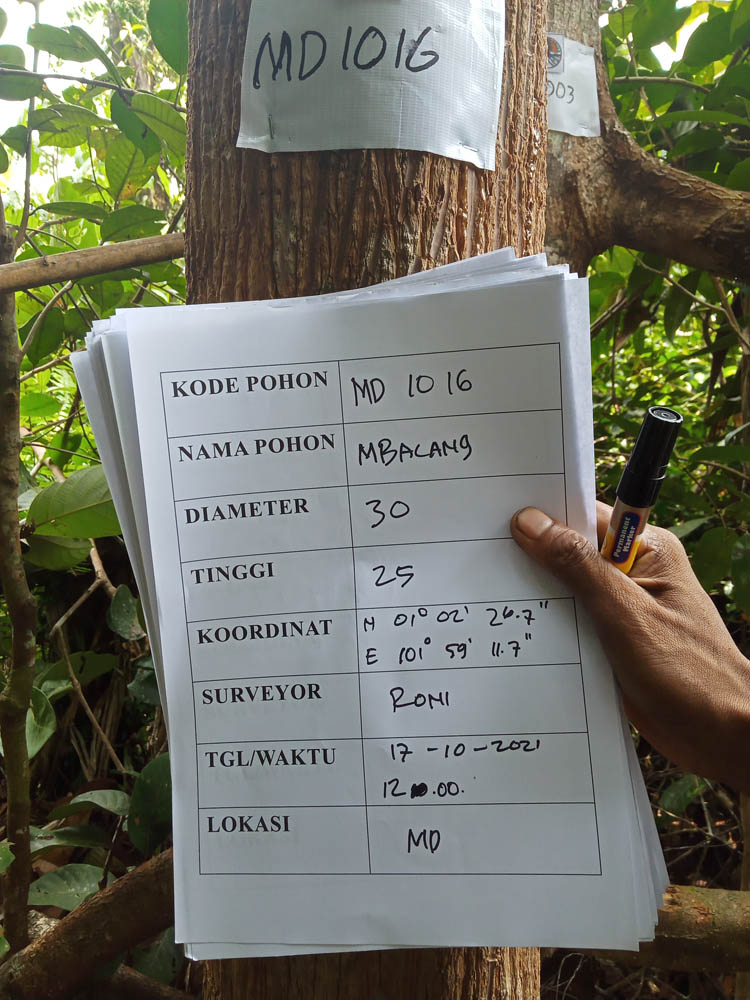 MD1016
003
KODE POHON MD 1016
NAMA POHON MBACANG
DIAMETER 30
TINGGI 25
KOORDINAT N 01° 02' 26.7"
E 101° 59' 11.7"
SURVEYOR RONI
TGL/WAKTU 17-10-2021
12.00.
LOKASI MD
Permanent
Marker